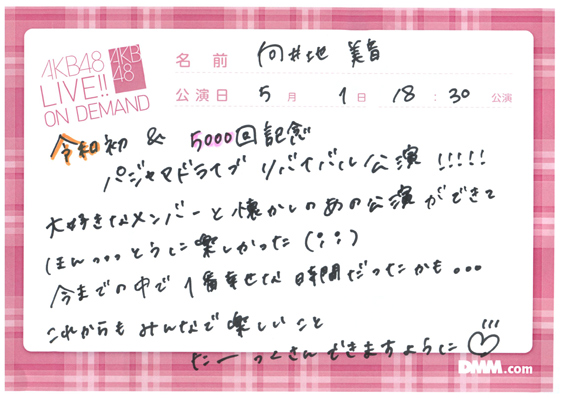 AKB48
LIVE!!
ON DEMAND
AKB
48
名前 向井地 美音
公演日 5月 1日 18:30 公演
令和初 & 5000回記念
パジャマドライブ リバイバル公演!!!!!
大好きなメンバーと懐かしのあの公演ができて
ほんっっっとうに楽しかった(;;)
今までの中で1番幸せな時間だったかも...
これからもみんなで楽しいこと
たーっくさんできますように♡
DMM.com